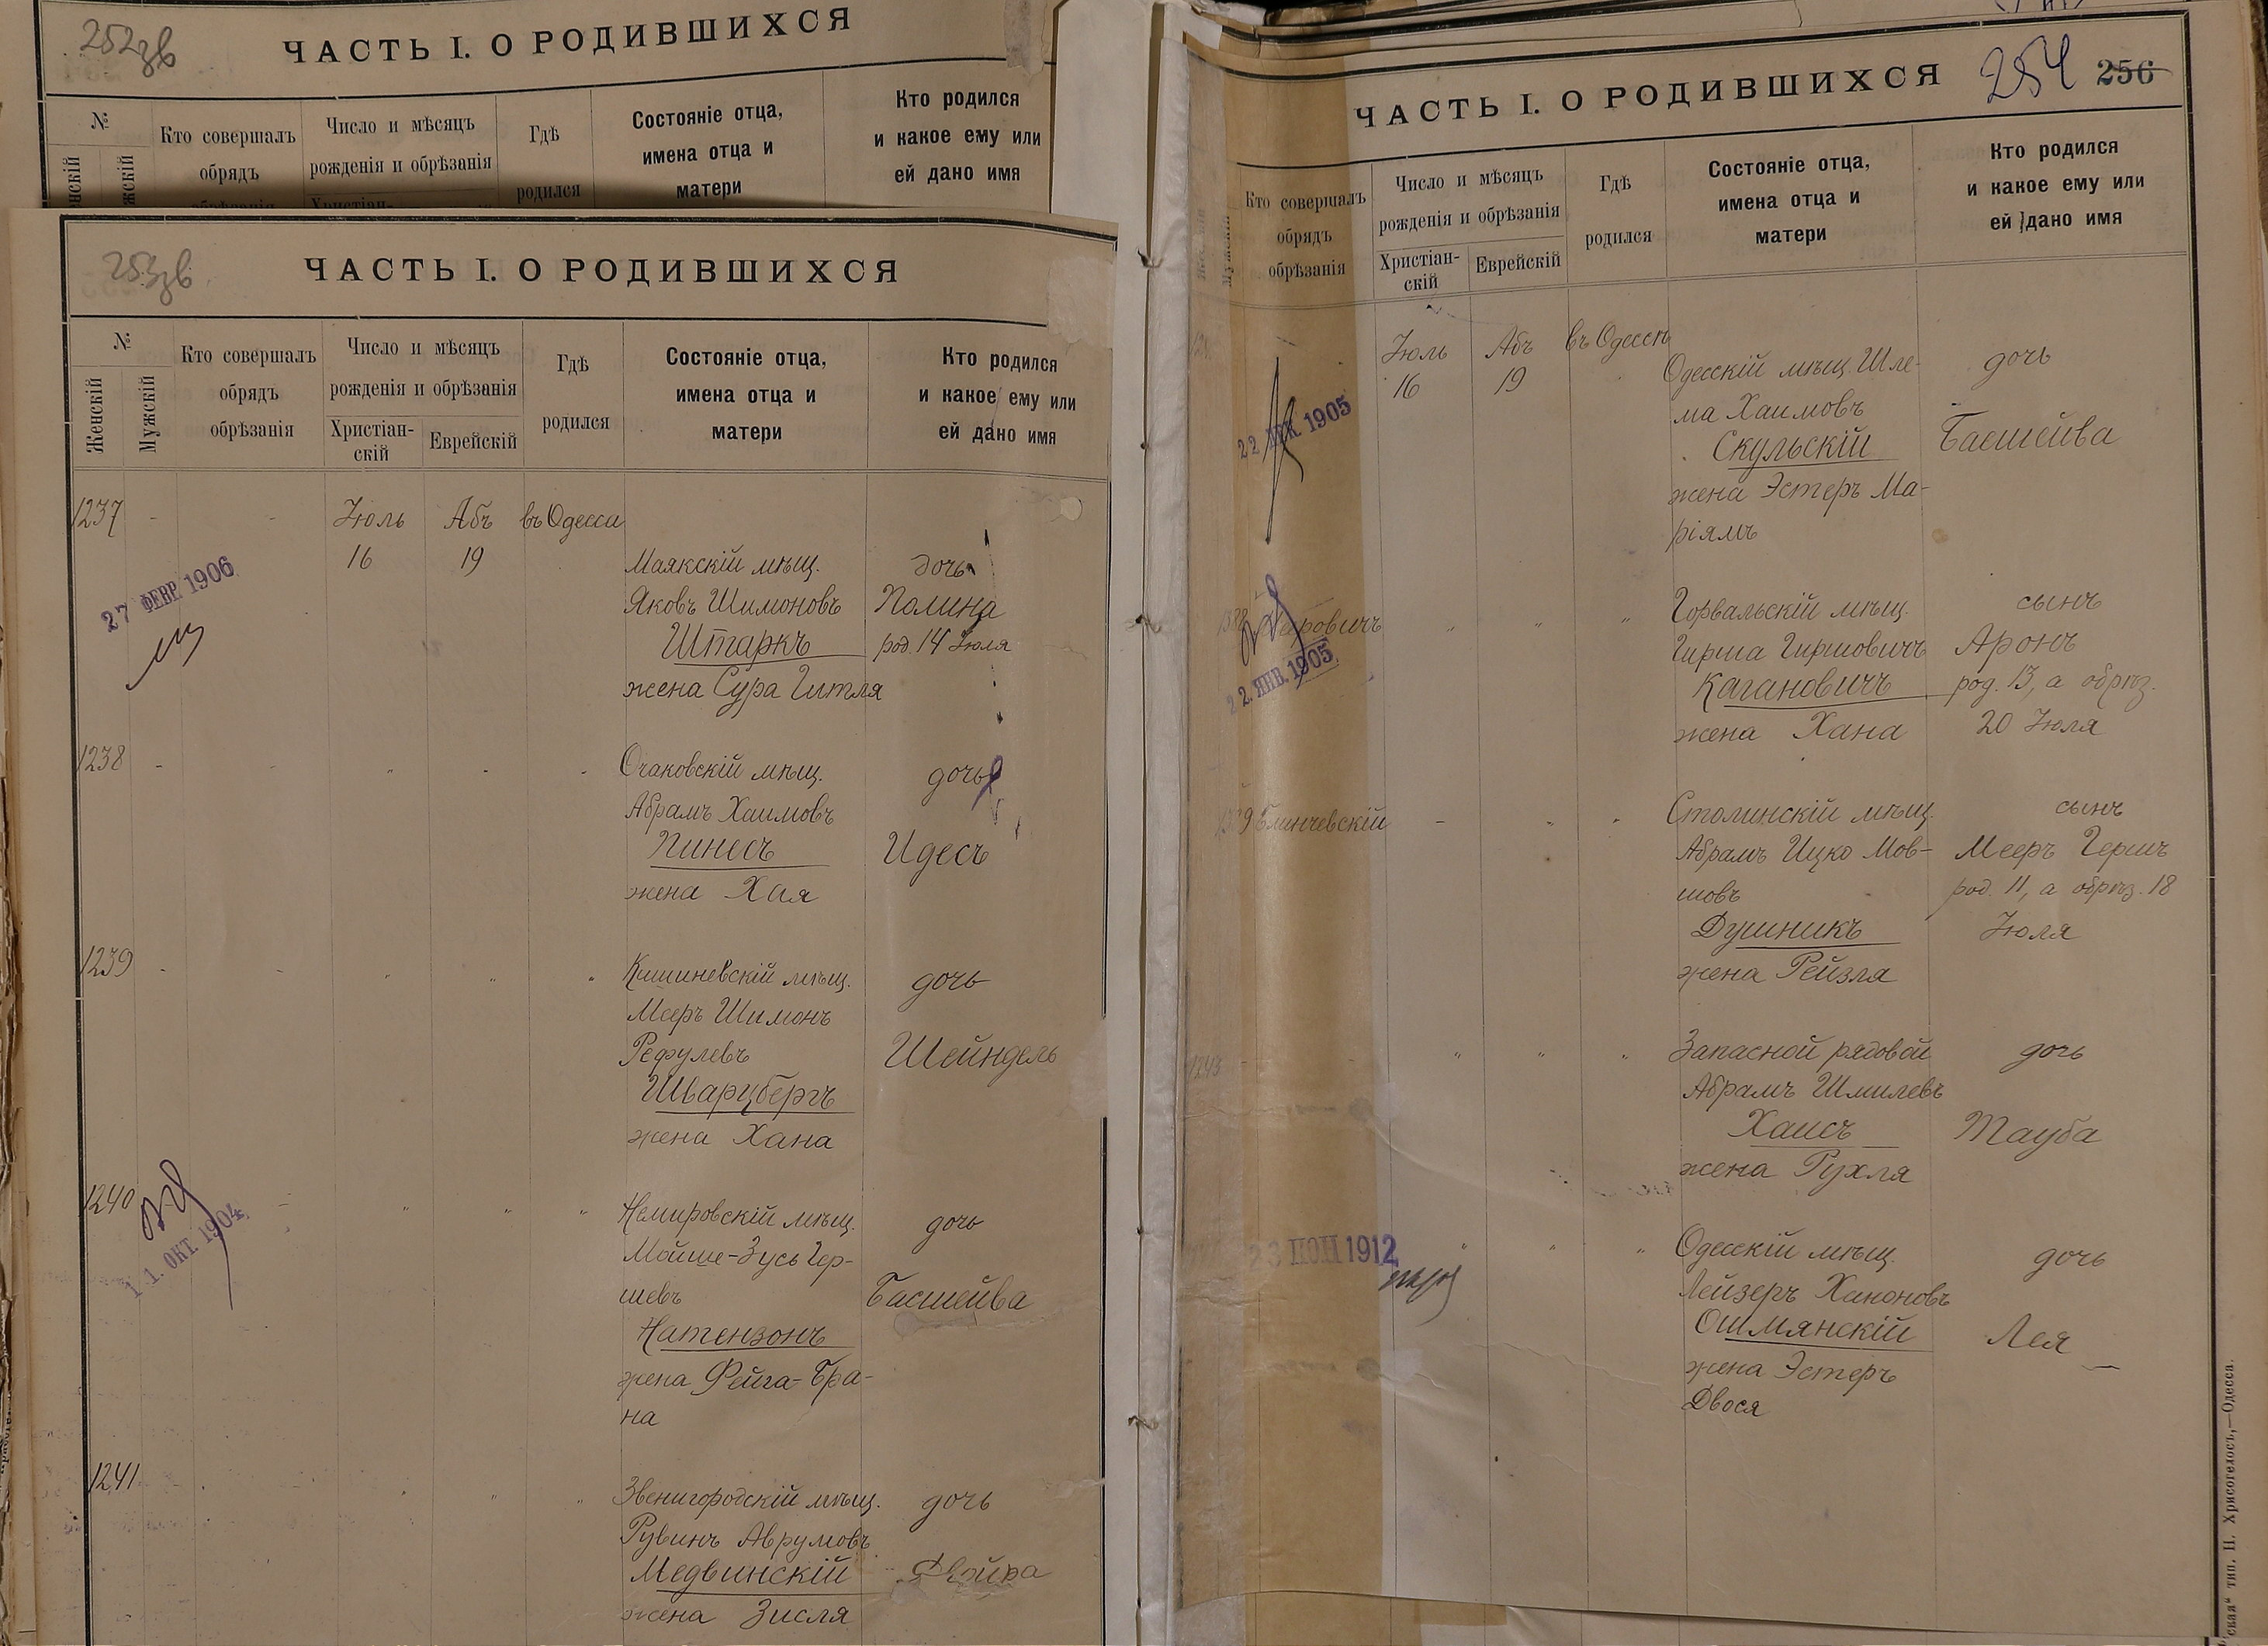 252зв
ЧАСТЬ I. О РОДИВШИХСЯ
№
Кто совершалъ
обрядъ
Число и мѣсяцъ
рожденія и обрѣзанія
Гдѣ
родился
Состояніе отца,
имена отца и
матери
Кто родился
и какое ему или
ей дано имя
253зв
ЧАСТЬ I. О РОДИВШИХСЯ
№
Женскій
Мужскій
Кто совершалъ
обрядъ
обрѣзанія
Число и мѣсяцъ
рожденія и обрѣзанія
Христіан-
скій
Еврейскій
Гдѣ
родился
Состояніе отца,
имена отца и
матери
Кто родился
и какое ему или
ей дано имя
1237 - - Іюль Абъ въ Одесса
16 19
27 ФЕВР. 1906
Маякскій мѣщ.
Яковъ Шимоновъ
Штаркъ
жена Сура Гитля
дочь
Полина
род. 14 Іюля
1238 - -
Очаковскій мѣщ.
Абрамъ Хаимовъ
Пинесъ
жена Хая
дочь
Идесъ
1239 - - " " "
Кишиневскій мѣщ.
Мееръ Шимонъ
Рефулевъ
Шварцбергъ
жена Хана
дочь
Шейндель
1240 - " " "
1 1. ОКТ. 1904
Немировскій мѣщ.
Мойше-Зусь Гер-
шевъ
Натензонъ
жена Фейга-Бра-
на
дочь
Басшейва
1241
Звенигородскій мѣщ.
Рувинъ Аврумовъ
Медвинскій
жена Зисля
дочь
254 256
ЧАСТЬ I. О РОДИВШИХСЯ
Мужскій
Кто совершалъ
обрядъ
обрѣзанія
Число и мѣсяцъ
рожденія и обрѣзанія
Христіан-
скій
Еврейскій
Гдѣ
родился
Состояніе отца,
имена отца и
матери
Кто родился
и какое ему или
ей дано имя
Іюль Абъ въ Одессѣ
16 19
22 ДЕК. 1905
Одесскій мѣщ. Шле-
ма Хаимовъ
Скульскій
жена Эстеръ Ма-
ріямъ
дочь
Басшейва
" " "
2 2. ЯНВ. 1905
Горвальскій мѣщ.
Гирша Гиршовичъ
Кагановичъ
жена Хана
сынъ
Аронъ
род. 13, а обрѣз.
20 Іюля
Блинчевскій - " "
Столинскій мѣщ.
Абрамъ Ицко Мов-
шовъ
Душникъ
жена Рейзля
сынъ
Мееръ Гершъ
род. 11, а обрѣз. 18
Іюля
1243 - " " "
Запасной рядовой
Абрамъ Шмилевъ
Хаисъ
жена Рухля
дочь
Тауба
23 ІЮН 1912 " " "
Одесскій мѣщ.
Лейзеръ Ханоновъ
Ошмянскій
жена Эстеръ
Двося
дочь
Лея
ская" тип. Н. Хрисогелосъ,—Одесса.